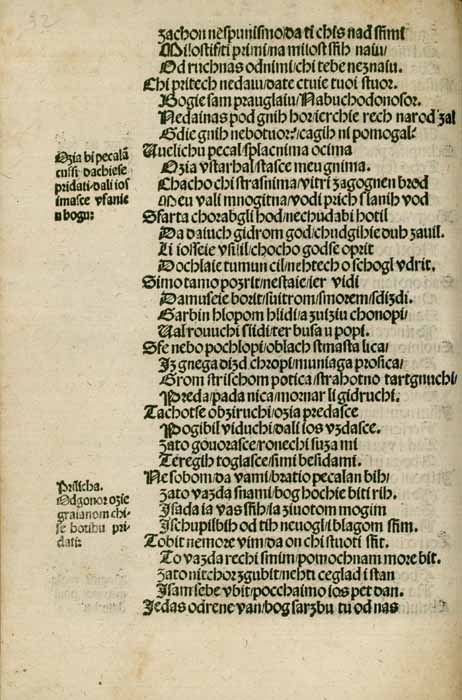 32
zachon nespunismo/da ti chis nad sfimi
Milostisti primi/na milost sfih naiu/
Od ruchnas odnimi/chi tebe neznaiu.
Chi pritech nedaiu/date ctuie tuoi stuor.
Bogie sam prauglaiu/Nabuchodonosor.
Nedainas pod gnih hor/ierchie rech narod zal
Gdie gnih nebotuor?/cagih ni pomogal?
Uuelichu pecal/splacnima ocima
Ozia vstarhal/stasce meu gnima.
Chacho chi strasnima/vitri zagognen brod
Meu vali mnogitna/vodi prich slanih vod
Sfarta chorabgli hod/nechudabi hotil
Da daiuch gidrom god/chudgihie duh zauil.
Li iosseie vsilil/chocho godse oprit
Dochlaie tumun cil/nehtech o schogl vdrit.
Simo tamo pozrit/nestaie/ier vidi
Damuseie borit/suitrom/smorem/sdizdi.
Garbin hlopom hlidi/a zuiziu chonopi/
Ual rouuchi siidi/ter busa u popi.
Sfe nebo pochlopi/oblach stmasta lica/
Iz gnega dizd chropi/muniaga prosica/
Grom strischom potica/strahotno tartgnuchi/
Preda/pada nica/mornar li gidruchi.
Tachotse obziruchi/ozia predasce
Pogibil viduchi/dali ios vzdasce.
zato gouorasce/ronechi suza mi
Teregih toglasce/simi besidami.
Ne sobom/da vami/bratio pecalan bih/
zato vazda snami/bog hochie biti rih.
Isada ia vas sfih/ia ziuotom mogim
Ischupilbih od tih neuogl/i blagom sfim.
Tobit nemore vim/da on chi stuoti sfit.
To vazda rechi smim/pomochnam more bit.
zato nitchor zgubit/nehti ceglad i stan
Isam sebe vbit/pocchaimo ios pet dan.
Iedas odrene van/bog sarzbu tu od nas
Ozia bi pecalã
cussi. dachiese
pridati/dali ios
imasce vfanie
u bogu:
Prilicha.
Odgonor ozie
graianom chi-
se hotihu pri-
dati: